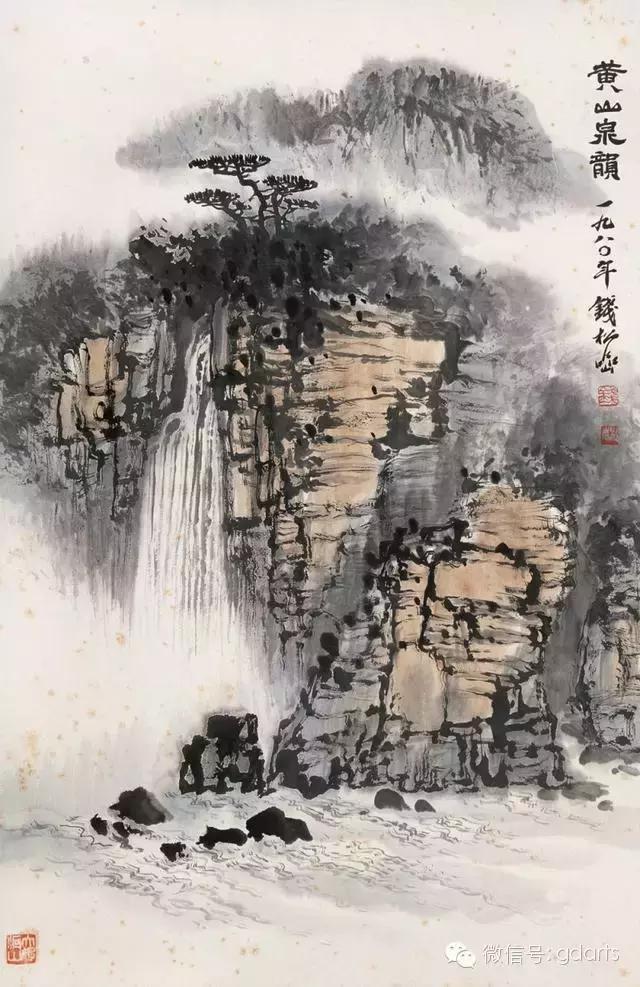 黄山泉韻
一九八〇年 錢松喦
微信号: gdarts